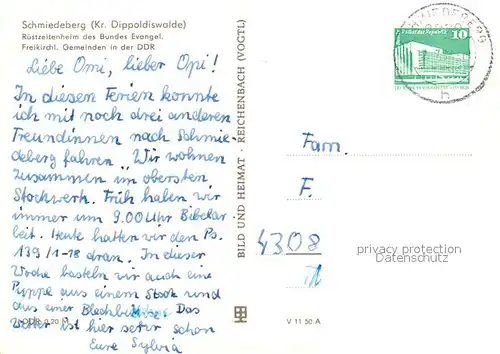 Schmiedeberg (Kr. Dippoldiswalde)
Rüstzeitenheim des Bundes Evangel.
Freikirchl. Gemeinden in der DDR
Liebe Omi, lieber Opi!
In diesen Ferien konnte
ich mit noch drei anderen
Freundinnen nach Schmie-
deberg fahren. Wir wohnen
zusammen im obersten
Stockwerk. Früh haben wir
immer um 9.00 Uhr Bibelar-
beit. Heute hatten wir den Ps.
139/1-18 dran. In dieser
Woche basteln wir auch eine
Puppe aus einem Stock und
aus einer Blechbüchse. Das
Wetter ist hier sehr schön
Eure Sylvia
0,20 M
BILD UND HEIMAT · REICHENBACH (VOGTL)
V 11 50 A
SCHMIEDEBERG
h
Palast der Republik
10
Fam.
F.
4308
privacy protection
Datenschutz